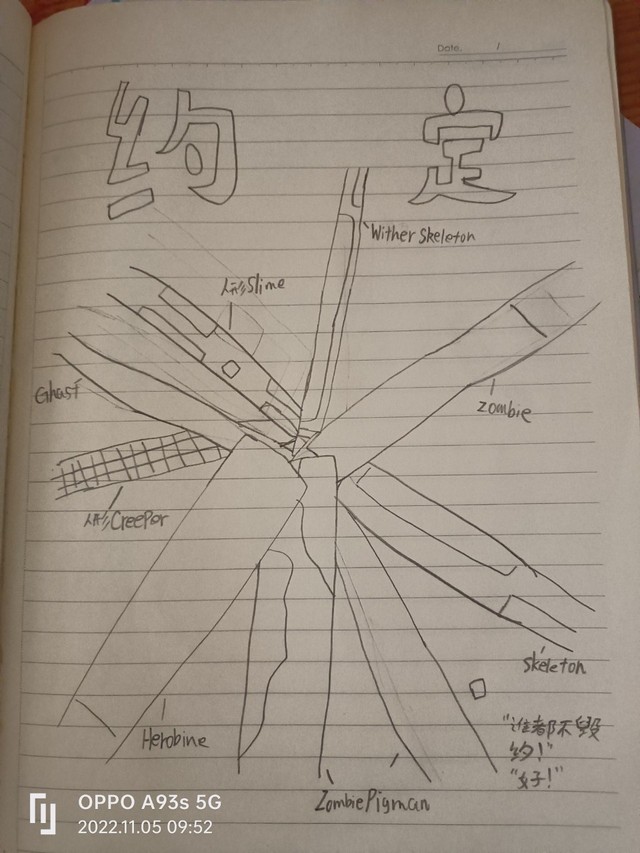 Date. /
约 定
Wither Skeleton
人形Slime
Ghast
Zombie
人形Creeper
Skeleton
Herobine
ZombiePigman
"谁都不毁
约!"
"好!"
OPPO A93s 5G
2022.11.05 09:52